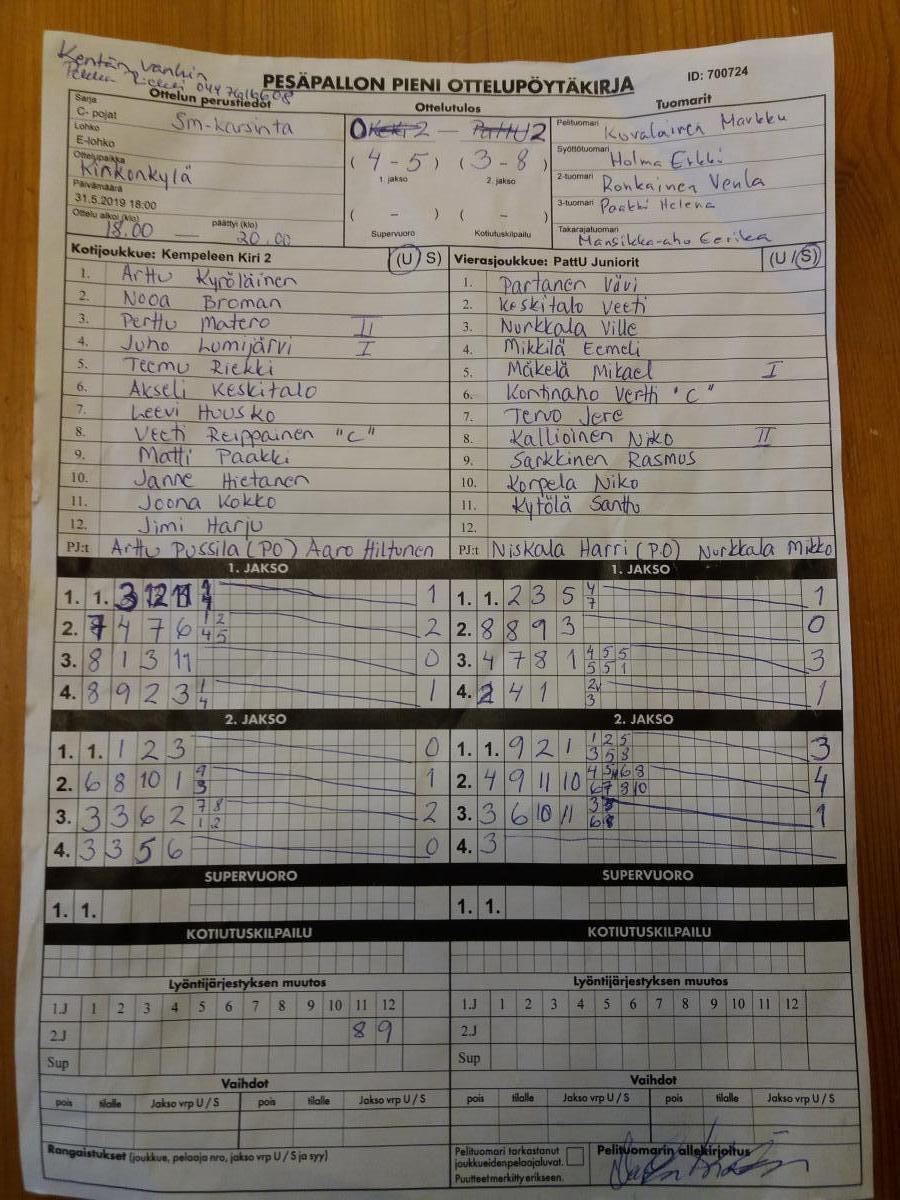 Kentän vanhin
PESÄPALLON PIENI OTTELUPÖYTÄKIRJA
ID: 700724
Ottelun perustiedot
Ottelutulos
Tuomarit
Sarja
C- pojat
Sm-karsinta
Lohko
E-lohko
Ottelupaikka
Kinkonkylä
Päivämäärä
31.5.2019 18:00
Ottelu alkoi (klo)
päättyi (klo)
18.00 — 20.00
0 2
( 4 - 5 ) ( 3 - 8 )
1. jakso 2. jakso
( - ) ( - )
Supervuoro Kotiutuskilpailu
Pelituomari Kovalainen Markku
Syöttötuomari Holma Erkki
2-tuomari Ronkainen Venla
3-tuomari Paakki Helena
Takarajatuomari
Mansikka-aho Eerika
Kotijoukkue: Kempeleen Kiri 2 (U S)
1. Arttu Kyröläinen
2. Nooa Broman
3. Perttu Matero II
4. Juho Lumijärvi I
5. Teemu Riekki
6. Akseli Keskitalo
7. Leevi Huusko
8. Veeti Reippainen "C"
9. Matti Paakki
10. Janne Hietanen
11. Joona Kokko
12. Jimi Harju
PJ:t Arttu Pussila (PO) Aaro Hiltunen
Vierasjoukkue: PattU Juniorit (U / S)
1. Partanen Vävi
2. Keskitalo Veeti
3. Nurkkala Ville
4. Mikkilä Eemeli
5. Mäkelä Mikael I
6. Kontinaho Vertti "C"
7. Tervo Jere
8. Kallioinen Niko II
9. Sarkkinen Rasmus
10. Korpela Niko
11. Kytölä Santtu
12.
PJ:t Niskala Harri (P.O) Nurkkala Mikko
1. JAKSO
1. 1. 3 12 11 1
2. 7 4 7 6 1 2 4 5 2
3. 8 1 3 11 0
4. 8 9 2 3 1 4 1
1. JAKSO
1. 1. 2 3 5 4 7 1
2. 8 8 9 3 0
3. 4 7 8 1 4 5 5 5 5 1 3
4. 2 4 1 1
2. JAKSO
1. 1. 1 2 3 0
2. 6 8 10 1 9 3 1
3. 3 3 6 2 7 8 1 2 2
4. 3 3 5 6 0
2. JAKSO
1. 1. 9 2 1 1 2 5 3 5 8 3
2. 4 9 11 10 4
3. 3 6 10 11 1
4. 3
SUPERVUORO
1. 1.
SUPERVUORO
1. 1.
KOTIUTUSKILPAILU
KOTIUTUSKILPAILU
Lyöntijärjestyksen muutos
1.J 1 2 3 4 5 6 7 8 9 10 11 12
2.J 8 9
Sup
Lyöntijärjestyksen muutos
1.J 1 2 3 4 5 6 7 8 9 10 11 12
2.J
Sup
Vaihdot
pois tilalle Jakso vrp U / S pois tilalle Jakso vrp U / S
Vaihdot
pois tilalle Jakso vrp U / S pois tilalle Jakso vrp U / S
Rangaistukset (joukkue, pelaaja nro, jakso vrp U / S ja syy)
Pelituomari tarkastanut
joukkueiden pelaajaluvat.
Puutteet merkitty erikseen.
Pelituomarin allekirjoitus